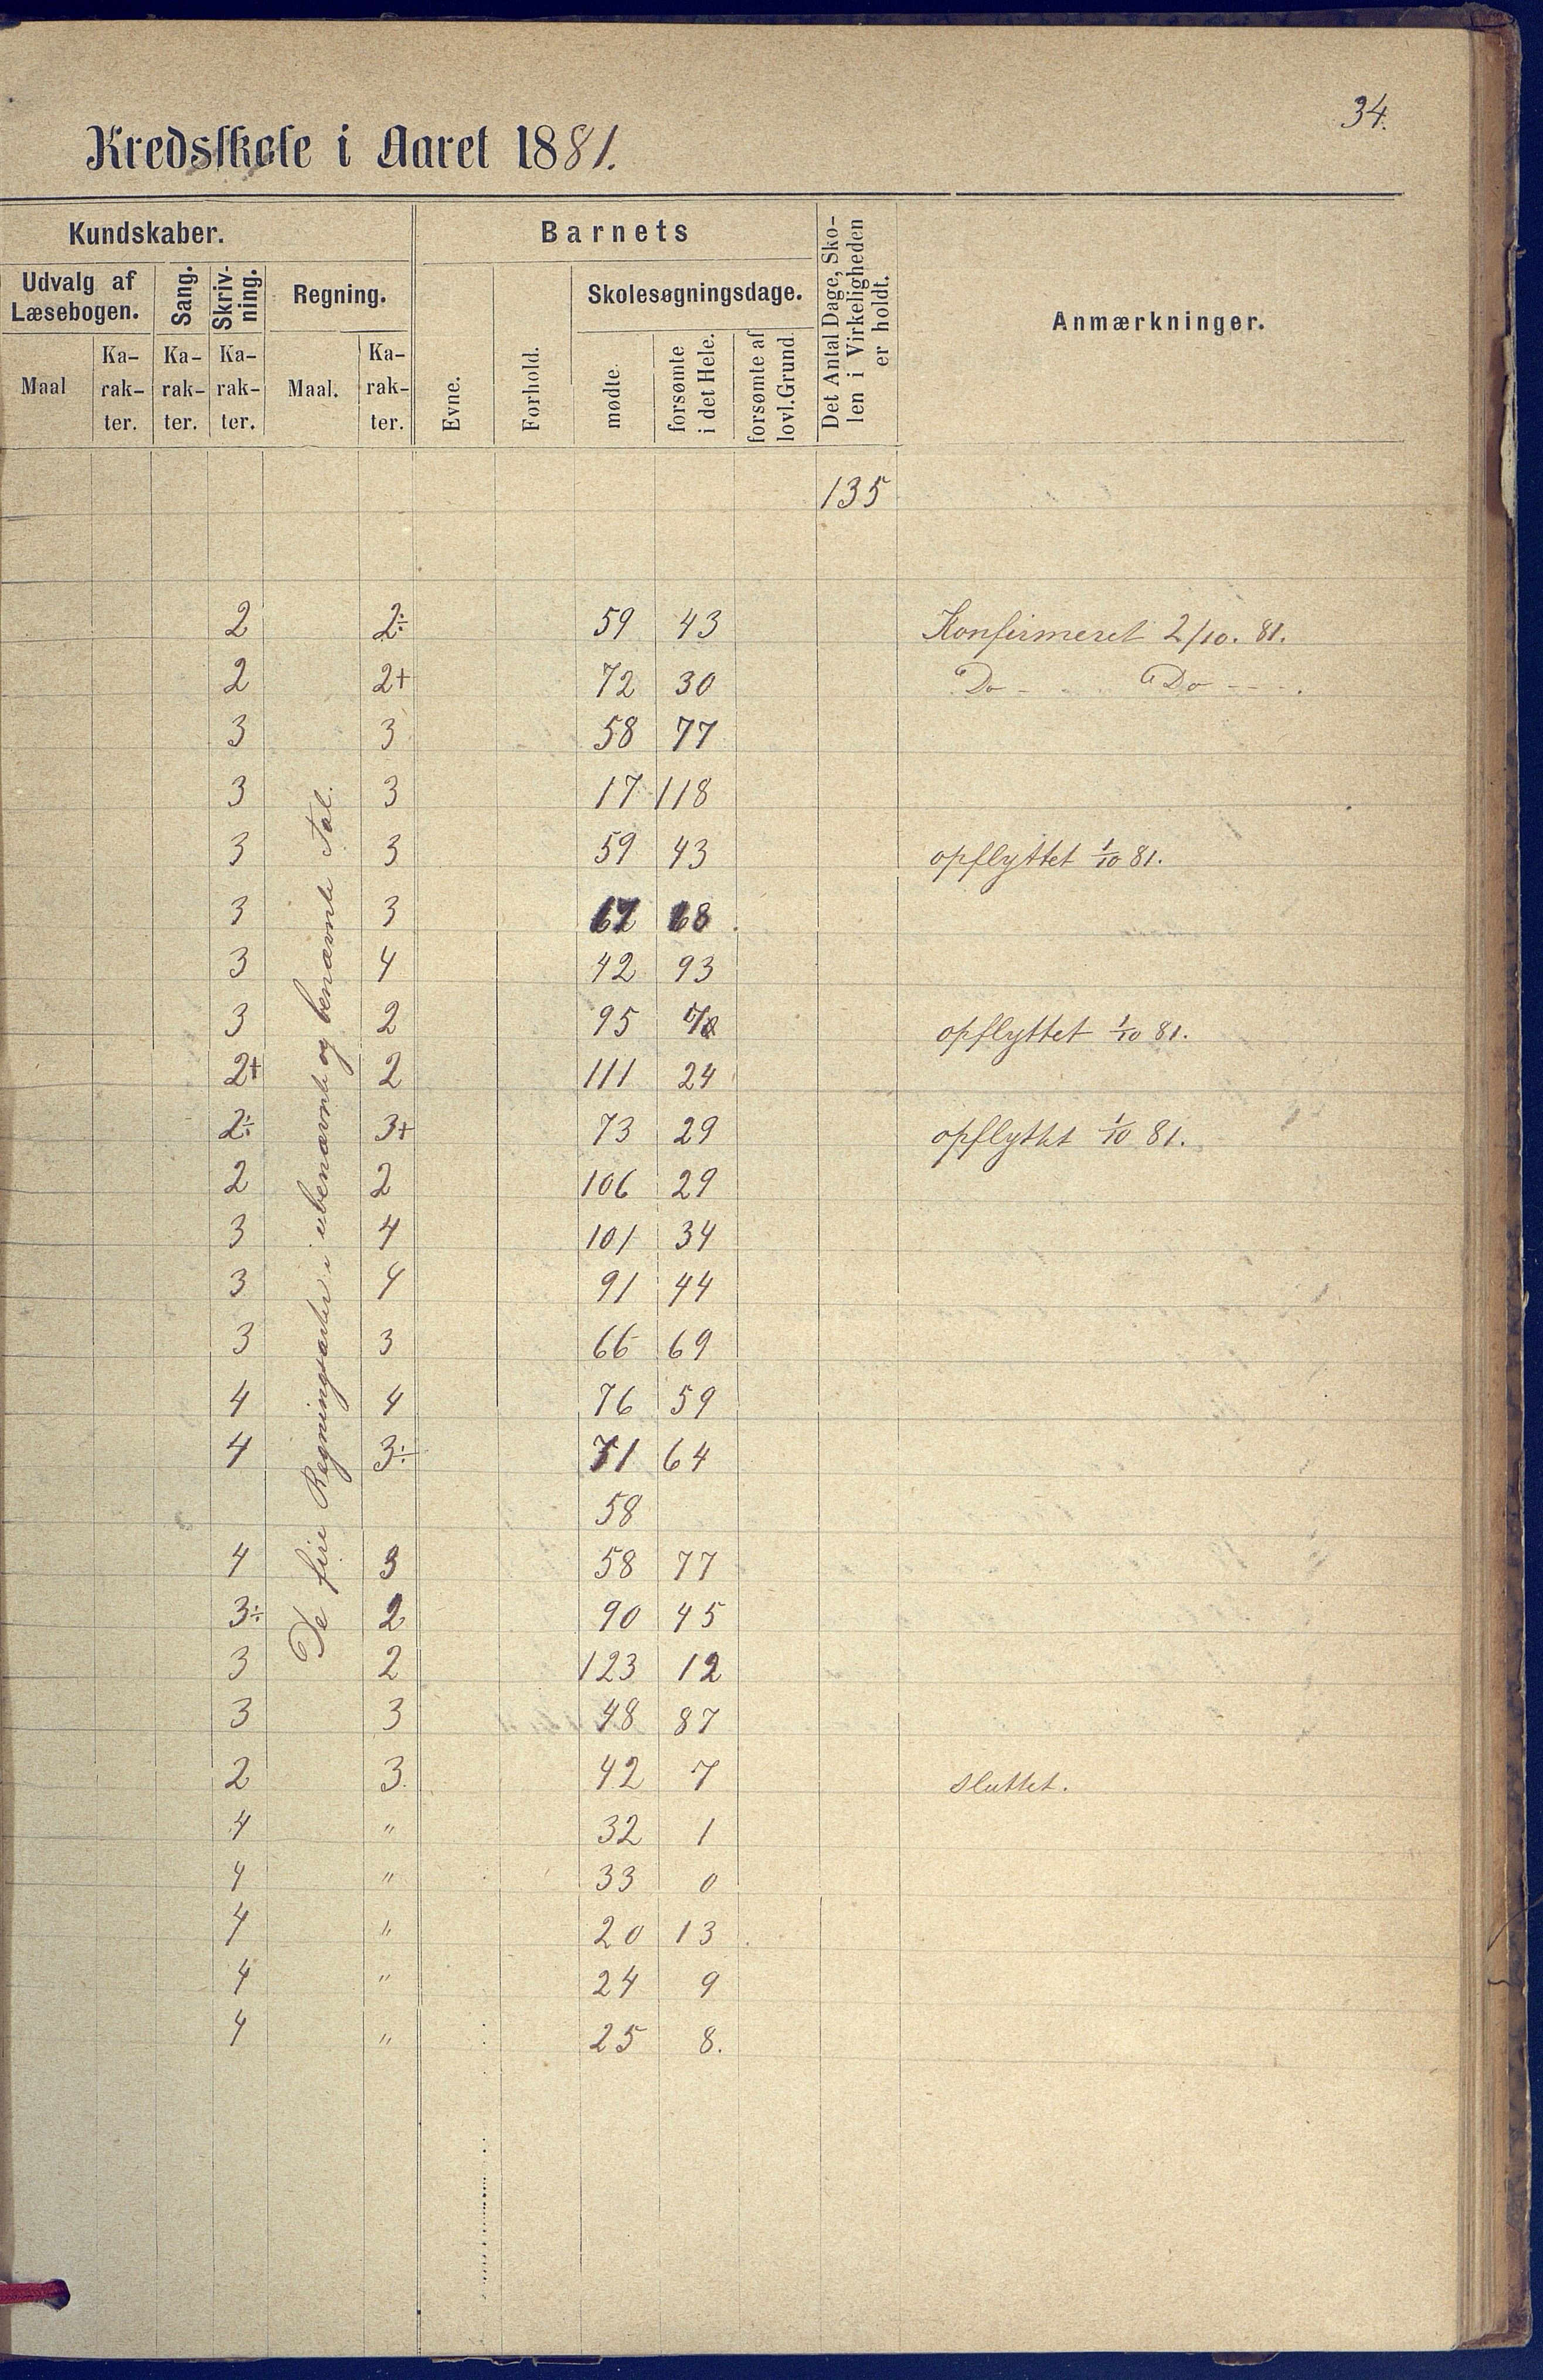 34.
Kredsskole i Aaret 1881.
Kundskaber.
Barnets
Det Antal Dage, Sko-
len i Virkeligheden
er holdt.
Anmærkninger.
Udvalg af
Læsebogen.
Sang.
Skriv-
ning.
Regning.
Evne.
Forhold.
Skolesøgningsdage.
Maal
Ka-
rak-
ter.
Ka-
rak-
ter.
Ka-
rak-
ter.
Maal.
Ka-
rak-
ter.
mødte.
forsømte
i det Hele.
forsømte af
lovl. Grund.
135
De fire Regningsarter i ubenævnte og benævnte Tal.
2 2÷ 59 43 Konfirmeret 2/10. 81.
2 2+ 72 30 Do - Do - - - .
3 3 58 77
3 3 17 118
3 3 59 43 opflyttet 1/10 81.
3 3 67 68.
3 4 42 93
3 2 95 opflyttet 1/10 81.
2+ 2 111 24
2÷ 3+ 73 29 opflyttet 1/10 81.
2 2 106 29
3 4 101 34
3 4 91 44
3 3 66 69
4 4 76 59
4 3÷ 71 64
58
4 3 58 77
3÷ 2 90 45
3 2 123 12
3 3 48 87
2 3. 42 7 sluttet.
4 " 32 1
4 " 33 0
4 " 20 13
4 " 24 9
4 " 25 8.